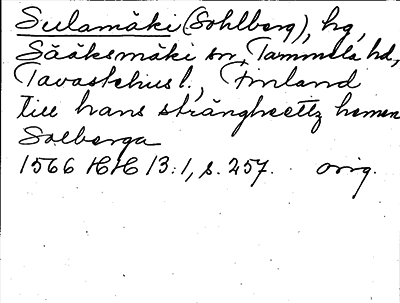 Sulamäki (Sohlberg), hg,
Sääksmäki sn, Tammela hd,
Tavastehus l., Finland
till hans strängheettz hemen
Solberga
1566 HH 13:1, s. 257. orig.